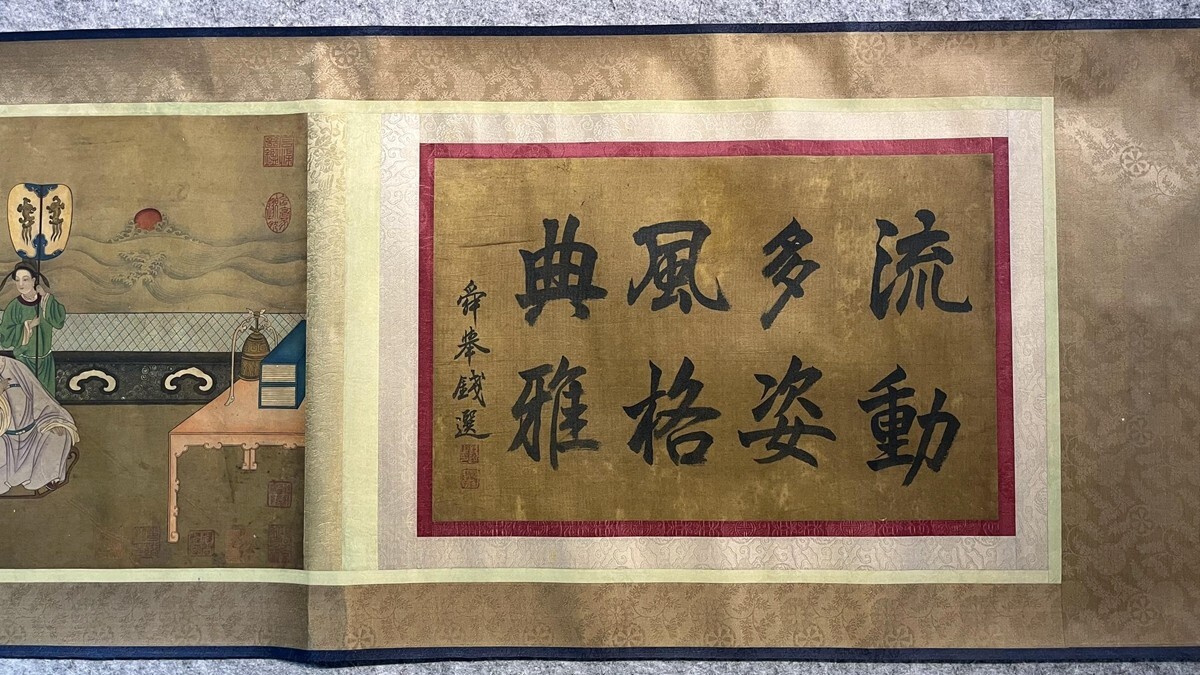 流動
多姿
風格
典雅
舜舉錢選